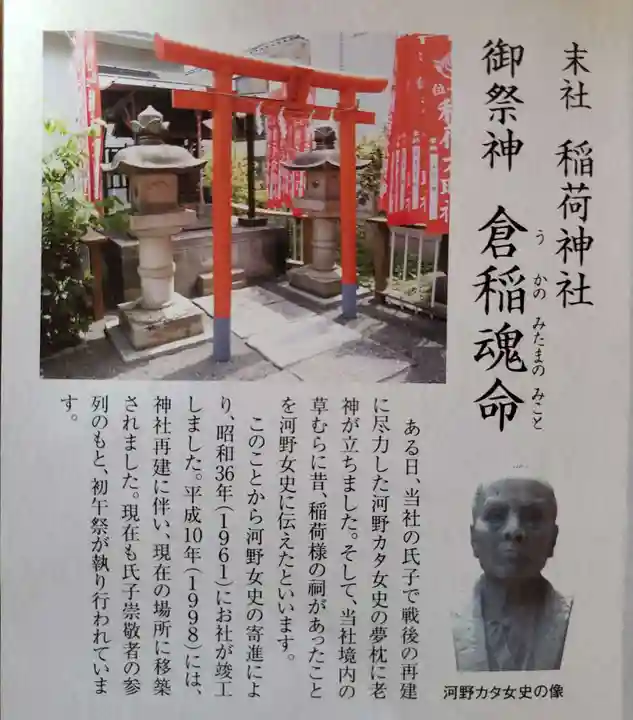 末社 稲荷神社
御祭神 倉稲魂命
うかのみたまのみこと
ある日、当社の氏子で戦後の再建
に尽力した河野カタ女史の夢枕に老
神が立ちました。そして、当社境内の
草むらに昔、稲荷様の祠があったこと
を河野女史に伝えたといいます。
このことから河野女史の寄進によ
り、昭和36年(1961)にお社が竣工
しました。平成10年(1998)には、
神社再建に伴い、現在の場所に移築
されました。現在も氏子崇敬者の参
列のもと、初午祭が執り行われていま
す。
河野カタ女史の像